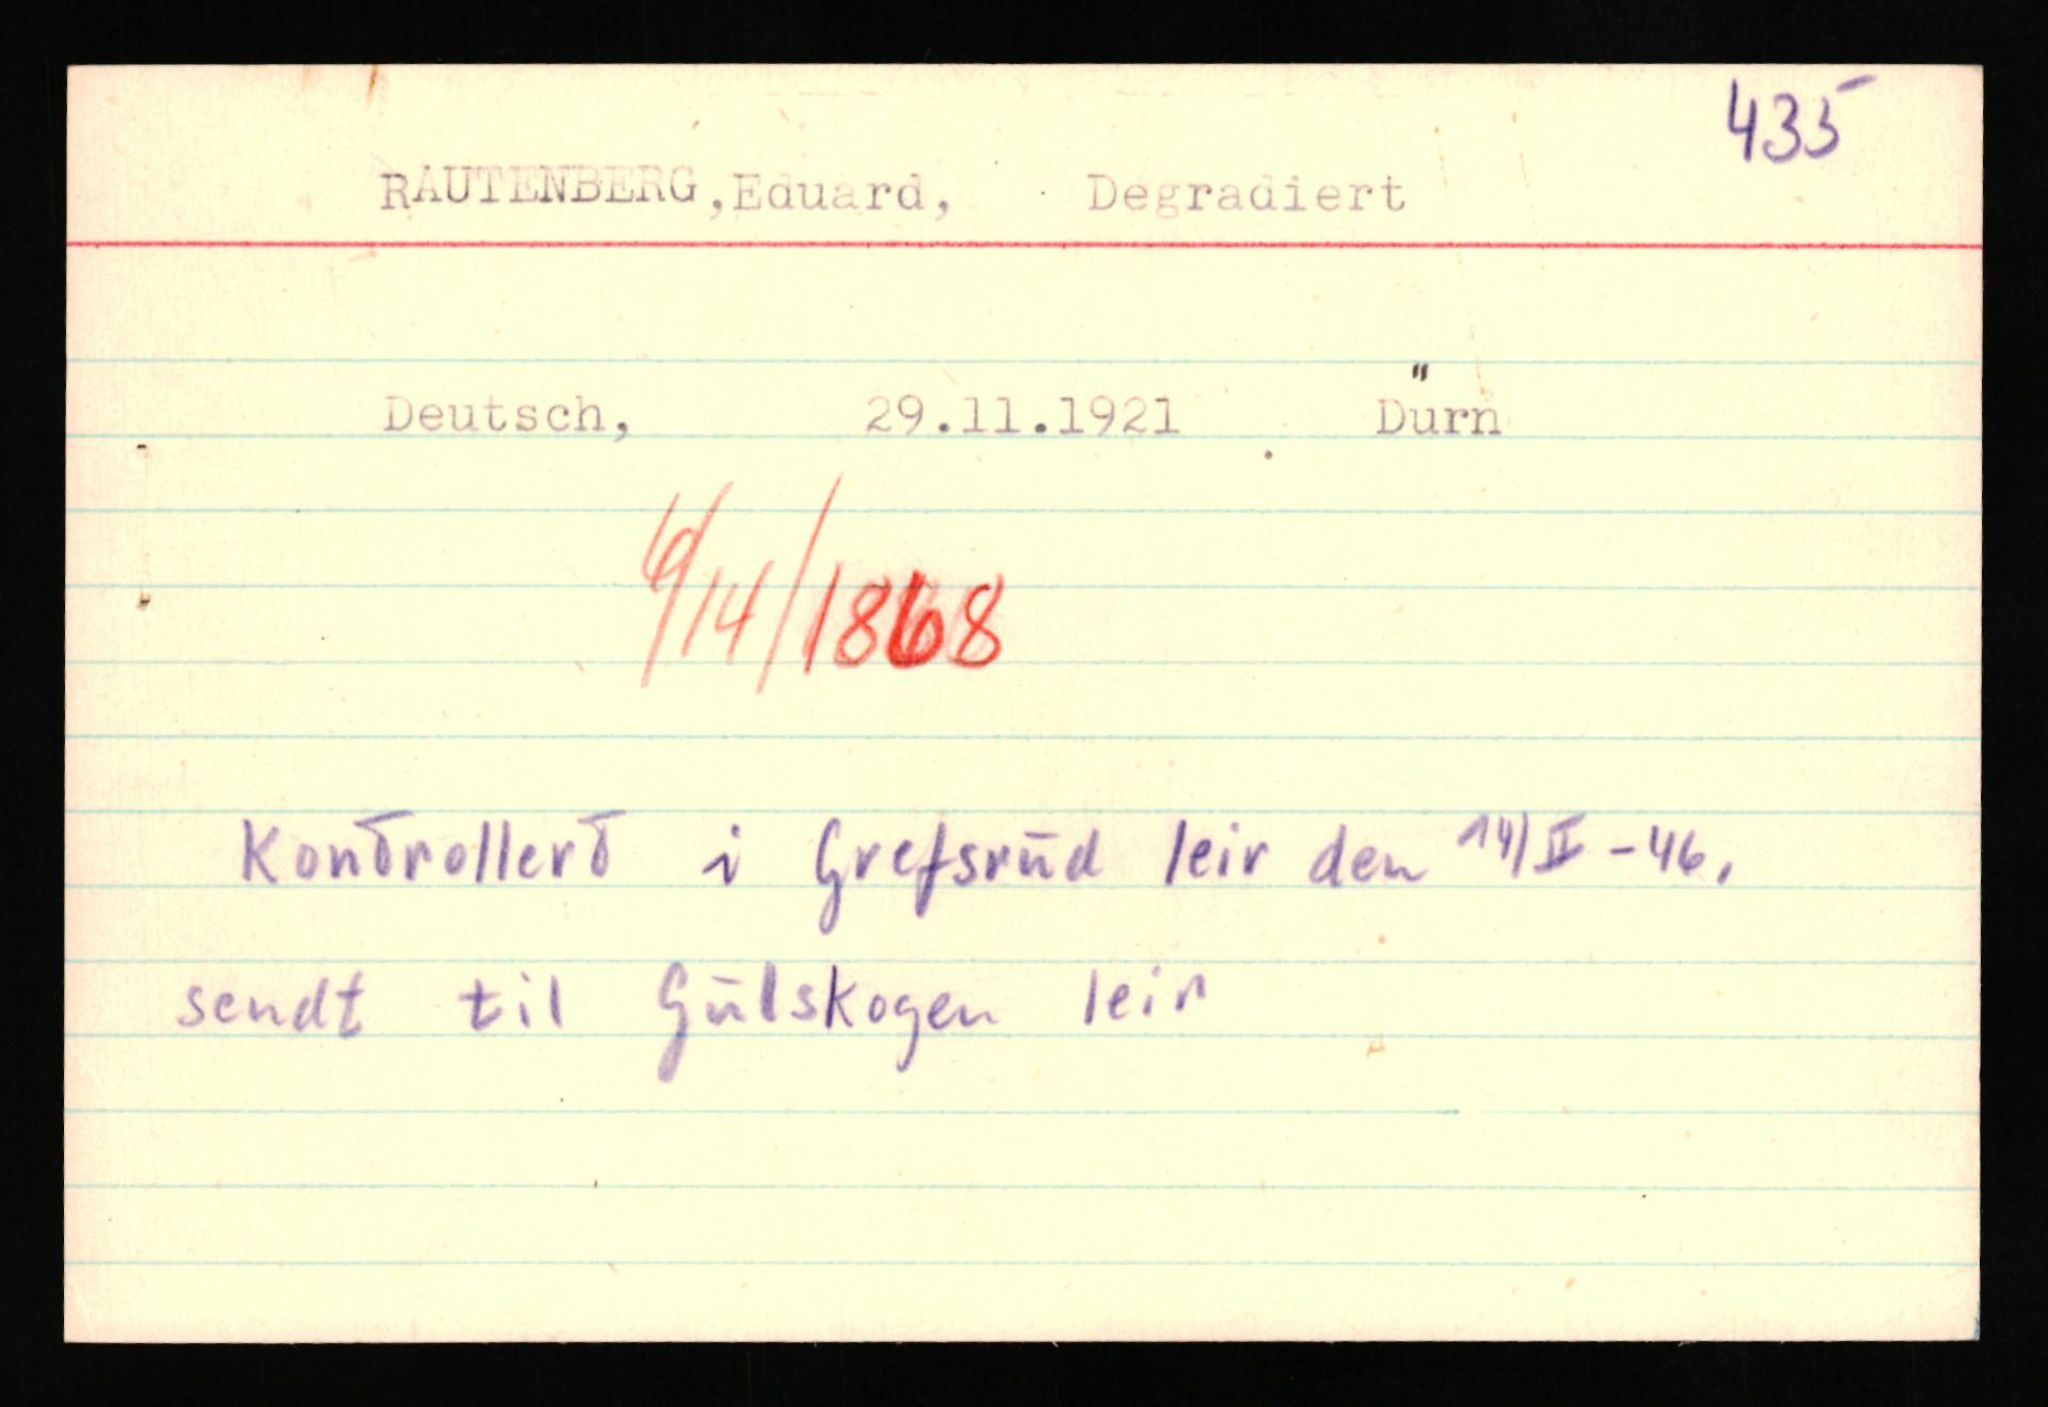 435
RAUTENBERG, Eduard, Degradiert
Deutsch, 29.11.1921 Dürn
/14/1868
Kontrollert i Grefsrud leir den 14/II-46.
sendt til Gulskogen leir